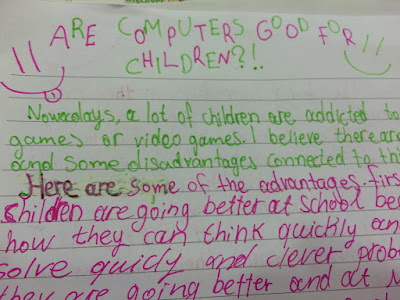 ARE COMPUTERS GOOD FOR
CHILDREN?!..
Nowadays, a lot of children are addicted to
games or video games. I believe there are
and some disadvantages connected to thi
Here are some of the advantages. Firs
children are going better at school be
how they can think quickly an
solve quicly and clever prob
they are going better and at